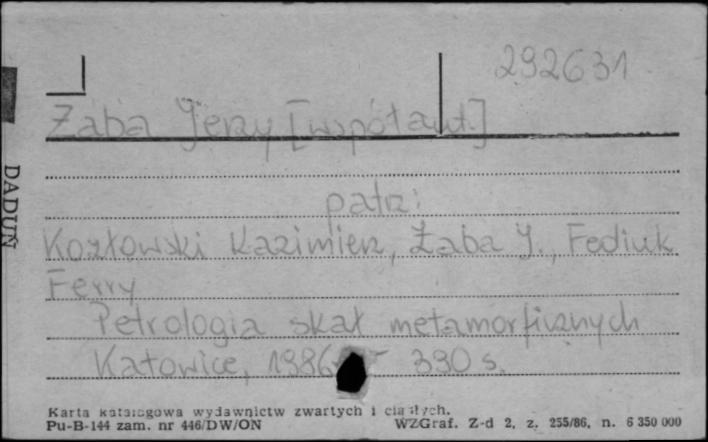 292631
Żaba Jerzy [współaut.]
patrz:
Kozłowski Kazimierz, Żaba J., Fediuk
Ferry
Petrologia skał metamorficznych
Katowice, 1986 390 s.
DADUŃ
Karta katalogowa wydawnictw zwartych i ciągłych.
Pu-B-144 zam. nr 446/DW/ON WZGraf. Z-d 2, z. 255/86, n. 6 350 000